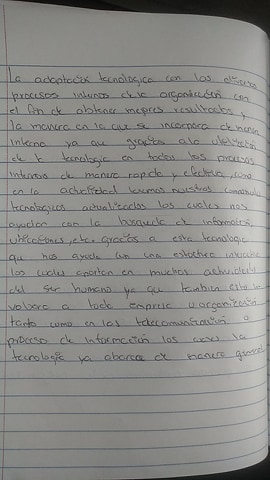 La adaptación tecnologica con los
procesos internos de la organización con
el fin de obtener mejores resultados y
la manera en la que se incorpora de manera
interna ya que gracias a la utilización
de la tecnologia en todos los procesos
internos de manera rapida y efectiva, como
en la actualidad tenemos nuestros
tecnologicos actualizados los cuales nos
ayudan con la busqueda de información,
ubicaciones, etc. gracias a esta tecnologia
que nos ayuda con una estructura
los cuales aportan en muchas actividades
del ser humano ya que tambien esto
a toda empresa u organización
tanto como en las telecomunicación o
proceso de información los cuales la
tecnologia ya abarca de manera general